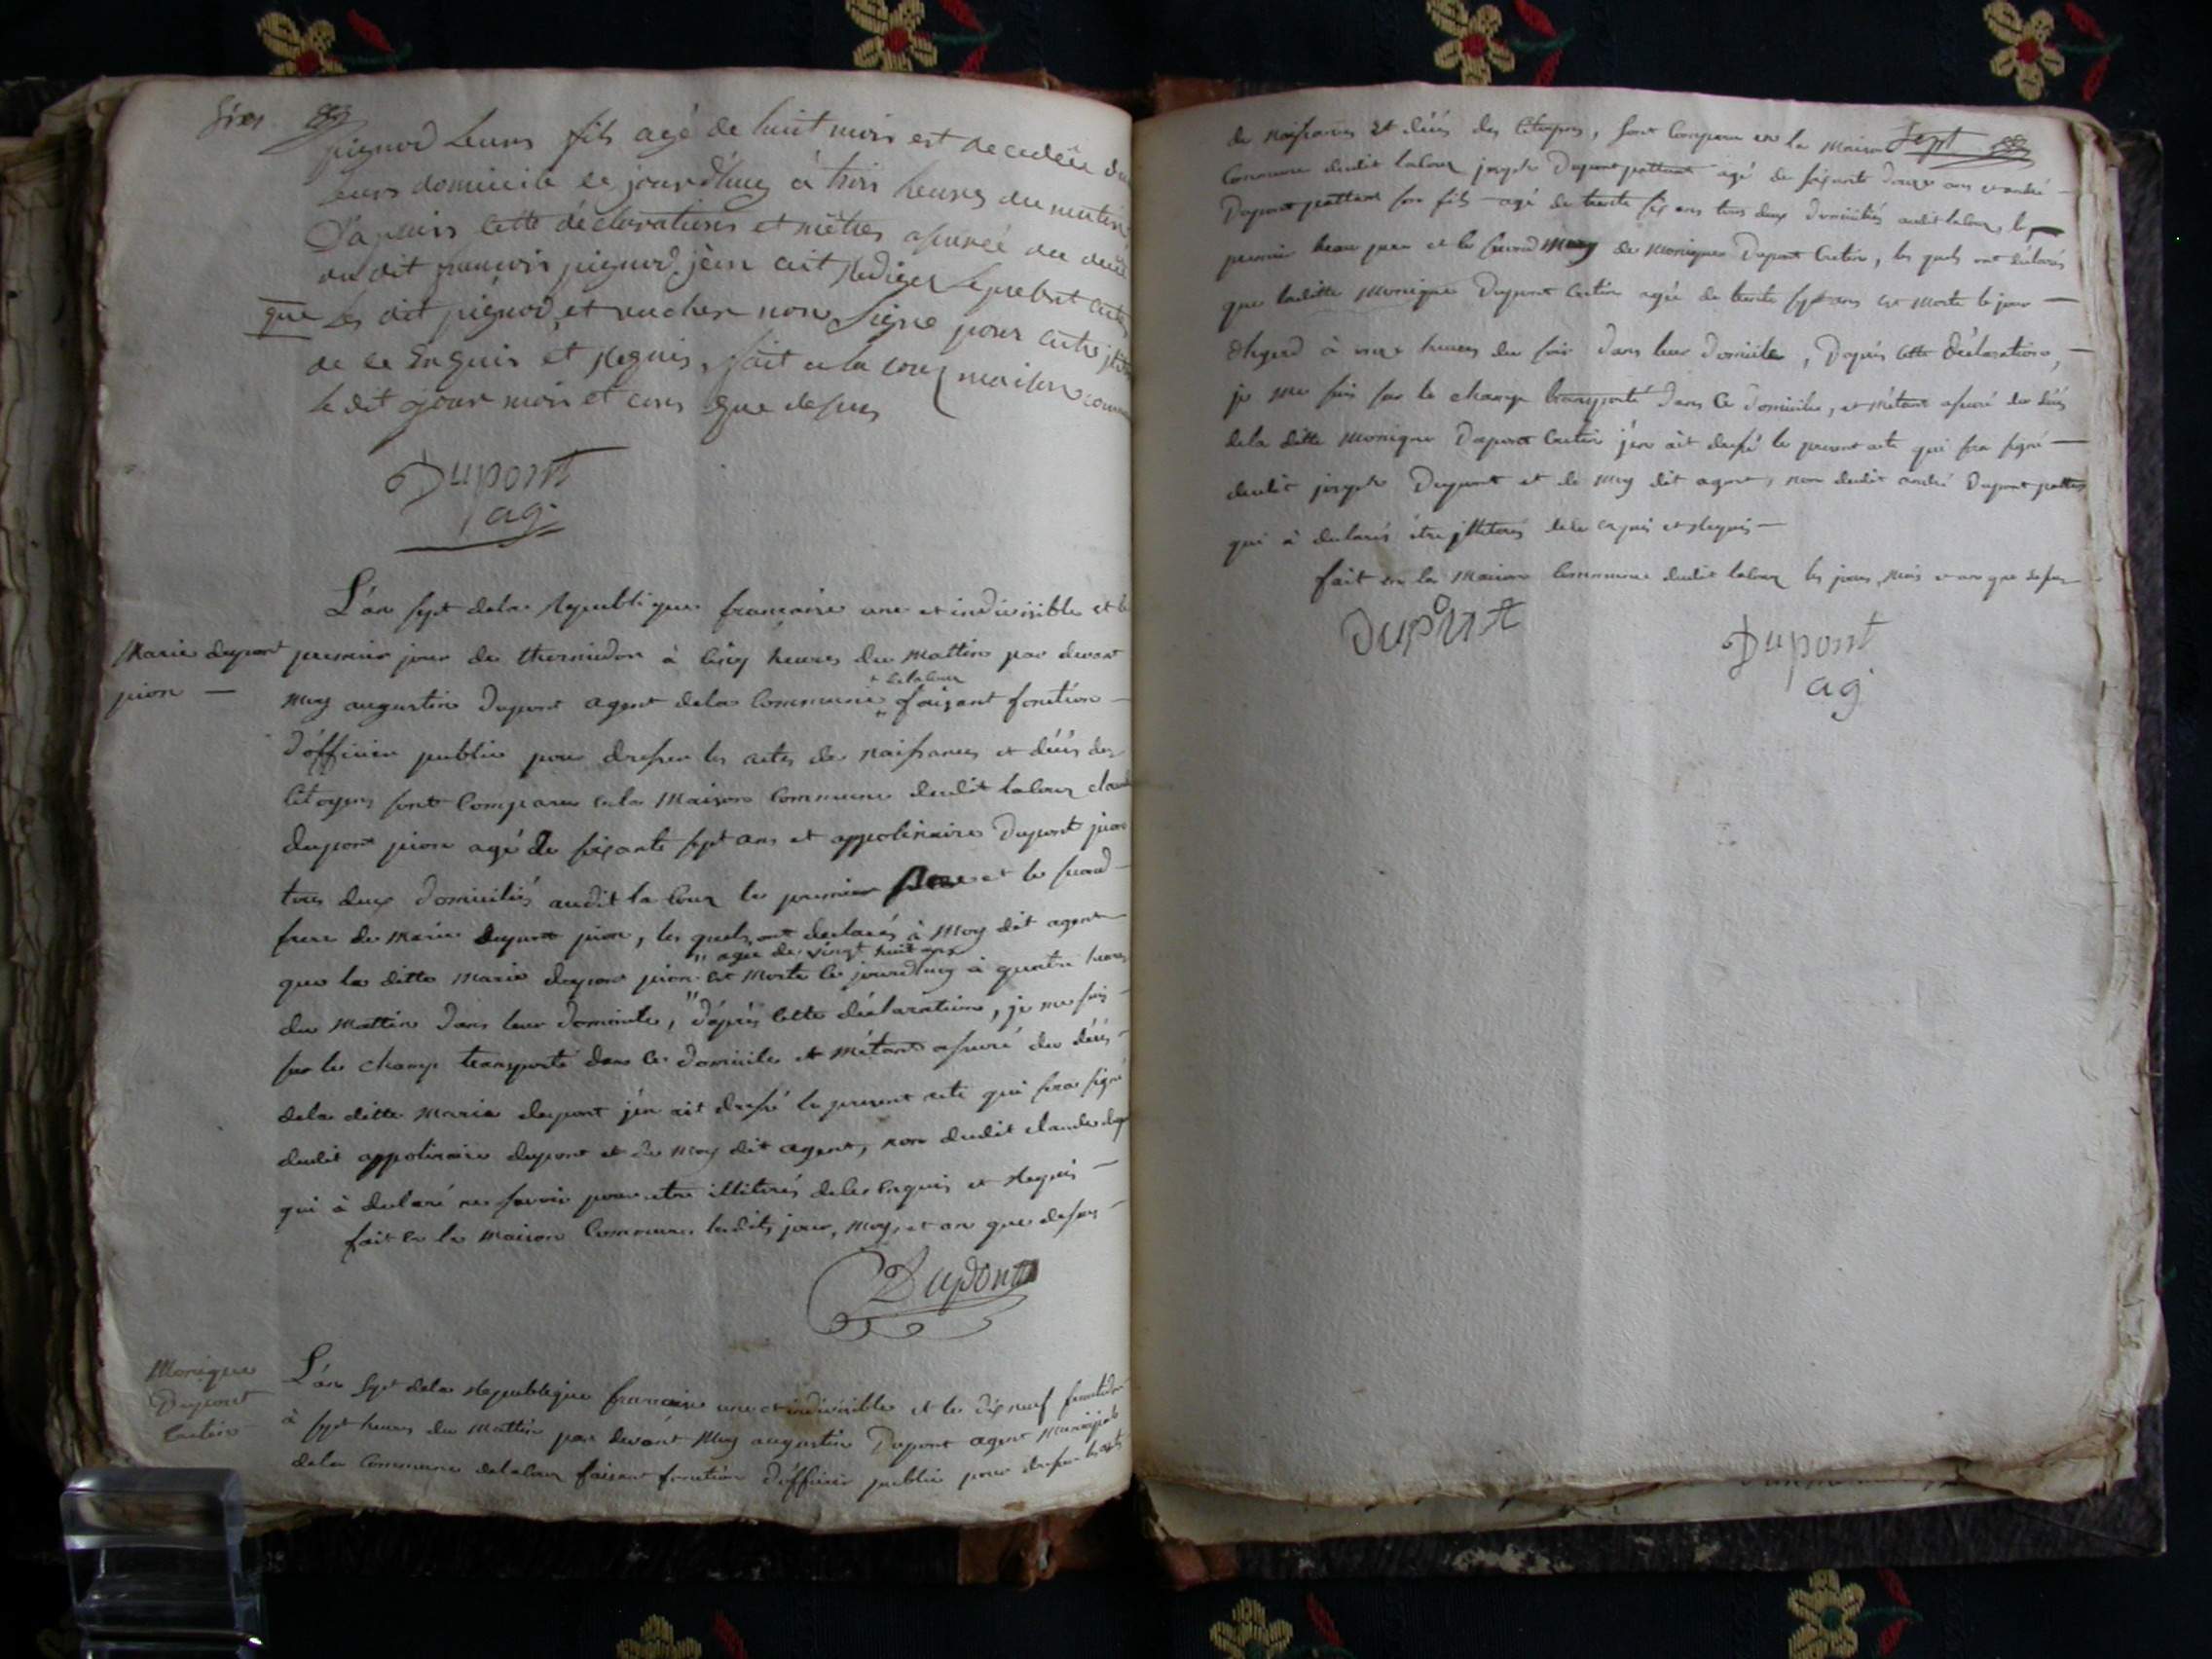 Six
pignod leurs fils agé de huit mois est decedée du
leurs domicile ce jourd'huy à trois heures du mattin
D'apreis cette déclarations et m'êttre assurée du décé
du dit pignod, j'ein ait Rediger le present acte
que les dit pignod, et vucher non Signe pour cettre
de ce Enquis et Requis, fait a la Cour maison comm
le dit jour mois et ans que desus
Dupont
ag.
L'an sept dela Republique francaise une et indivisible et le
Marie dupont
pion —
premier jour de thermidor à cinq heures du mattin par devant
moy augustin Dupont agent dela Commune delalour faisant fonction —
d'officier public pour dresser les actes de naissances et décés des
Citoyens sont Comparu en la Maison Commune dudit lalour claude
dupont pion agé de soixante sept ans et appolinaire Dupont pion
tous deux domiciliés audit lalour le premier pere et le second —
frere de Marie dupont pion, les quels ont declarés à Moy dit agent
" agée de vingt huit ans
que la ditte Marie dupont pion est Morte ce jourd'huy à quatre heures
du Mattin dans leur domicile, d'après cette déclaration, je me suis —
sur le champ transporté dans ce domicile et m'étant assuré du décés —
dela ditte Marie dupont j'en ait dressé le present acte qui sera signé
dudit appolinaire dupont et de Moy dit agent, non dudit claude dup
qui à declaré ne savoir pour etre illiterés dele Enquis et Requis —
fait en la Maison Commune lesdits jour, moy, et an que dessus —
Dupont
Monique
Dupont
Cretin
L'an sept dela Republique francaise une et indivisible et le dix neuf fructidor
à sept heures du Mattin par devant Moy augustin Dupont agent Municipale
dela Commune delalour faisant fonction d'officier public pour dresser les acts
Sept
de naissances et décés des Citoyens, sont Comparu en la Maison
Commune dudit lalour joseph Dupont pattant agé de soixante douze ans et andré —
Dupont pattant son fils agé de trente six ans tous deux domiciliés audit lalour, le
premier beau pere et le second Mary de Monique Dupont Cretin, les quels ont declarés
que laditte Monique Dupont Cretin agée de trente sept ans est Morte le jour —
d'hyerd à onze heures du soir dans leur domicile, D'après cette déclaration, —
je me suis sur le champ transporté dans ce domicile, et m'étant assuré du décés
dela ditte Monique Dupont Cretin j'en ait dressé le present acte qui sera signé —
dudit joseph Dupont et de Moy dit agent, non dudit andré Dupont pattant
qui à declarés être illiterés dele enquis et Requis —
fait en la Maison Commune dudit lalour les jour, mois et an que dessus
Dupont
Dupont
ag